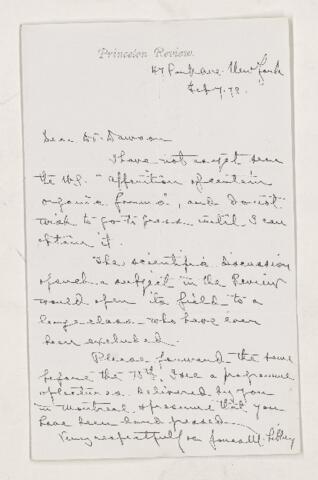 Princeton Review.
47 Park ave. New York
Feb 7. 78.
Dear Dr. Dawson
I have not as yet seen
the MS. "apparition of certain
organic forms", and do not
wish to go to press until I can
obtain it.
The scientific discussion
of such a subject in the Review
would open its field to a
large class who have ever
been excluded.
Please forward the same
before the 15th. I see a programme
of lectures delivered by you
in Montreal & presume that you
have been hard pressed.
Very respectfully Jonas M. Libbey